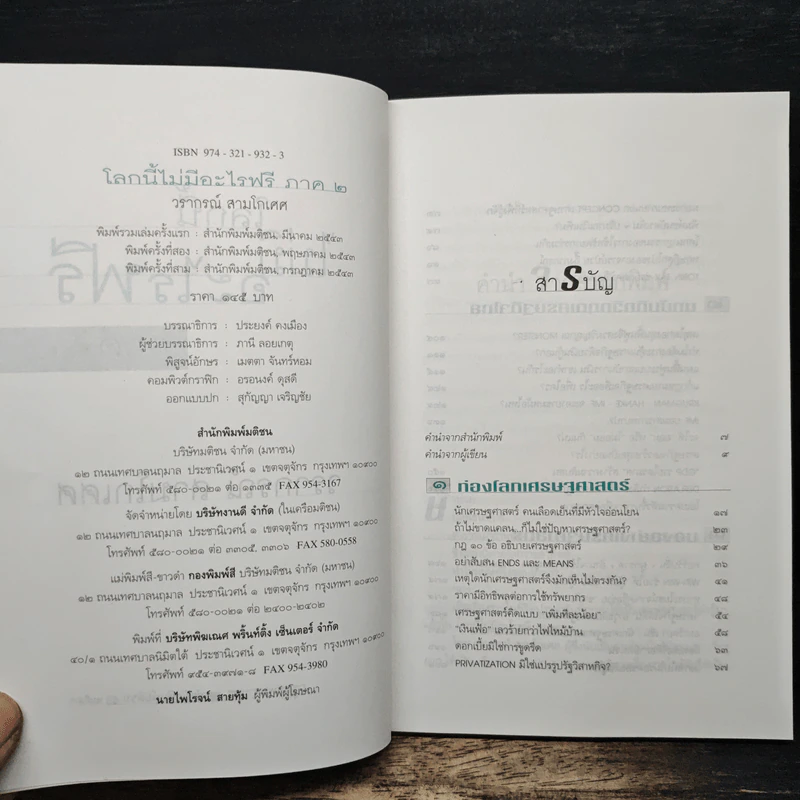 ISBN 974 - 321 - 932 - 3
โลกนี้ไม่มีอะไรฟรี ภาค ๒
วรากรณ์ สามโกเศศ
พิมพ์รวมเล่มครั้งแรก : สำนักพิมพ์มติชน, มีนาคม ๒๕๔๓
พิมพ์ครั้งที่สอง : สำนักพิมพ์มติชน, พฤษภาคม ๒๕๔๓
พิมพ์ครั้งที่สาม : สำนักพิมพ์มติชน, กรกฎาคม ๒๕๔๓
ราคา ๑๔๕ บาท
บรรณาธิการ : ประยงค์ คงเมือง
ผู้ช่วยบรรณาธิการ : ภานี ลอยเกตุ
พิสูจน์อักษร : เมตตา จันทร์หอม
คอมพิวต์กราฟิก : อรอนงค์ ดุสดี
ออกแบบปก : สุกัญญา เจริญชัย
สำนักพิมพ์มติชน
บริษัทมติชน จำกัด (มหาชน)
๑๒ ถนนเทศบาลนฤมาล ประชานิเวศน์ ๑ เขตจตุจักร กรุงเทพฯ ๑๐๙๐๐
โทรศัพท์ ๕๘๐-๐๐๒๑ ต่อ ๑๒๓๕ FAX 954-3167
จัดจำหน่ายโดย บริษัทงานดี จำกัด (ในเครือมติชน)
๑๒ ถนนเทศบาลนฤมาล ประชานิเวศน์ ๑ เขตจตุจักร กรุงเทพฯ ๑๐๙๐๐
โทรศัพท์ ๕๘๐-๐๐๒๑ ต่อ ๓๓๐๕, ๓๓๐๖ FAX 580-0558
แม่พิมพ์สี-ขาวดำ กองพิมพ์สี บริษัทมติชน จำกัด (มหาชน)
๑๒ ถนนเทศบาลนฤมาล ประชานิเวศน์ ๑ เขตจตุจักร กรุงเทพฯ ๑๐๙๐๐
โทรศัพท์ ๕๘๐-๐๐๒๑ ต่อ ๒๔๐๐-๒๔๐๒
พิมพ์ที่ บริษัทพิฆเณศ พริ้นท์ติ้ง เซ็นเตอร์ จำกัด
๔๐/๑ ถนนเทศบาลนิมิตใต้ ประชานิเวศน์ ๑ เขตจตุจักร กรุงเทพฯ ๑๐๙๐๐
โทรศัพท์ ๙๕๔-๓๙๗๑-๘ FAX 954-3980
นายไพโรจน์ สายทุ้ม ผู้พิมพ์ผู้โฆษณา
สารบัญ
คำนำจากสำนักพิมพ์ ๗
คำนำจากผู้เขียน ๙
๑ ท่องโลกเศรษฐศาสตร์
นักเศรษฐศาสตร์ คนเลือดเย็นที่มีหัวใจอ่อนโยน ๑๗
ถ้าไม่ขาดแคลน..ก็ไม่ใช่ปัญหาเศรษฐศาสตร์? ๒๓
กฎ ๑๐ ข้อ อธิบายเศรษฐศาสตร์ ๒๙
อย่าสับสน ENDS และ MEANS ๓๖
เหตุใดนักเศรษฐศาสตร์จึงมักเห็นไม่ตรงกัน? ๔๑
ราคามีอิทธิพลต่อการใช้ทรัพยากร ๔๘
เศรษฐศาสตร์คิดแบบ "เพิ่มทีละน้อย" ๕๔
"เงินเฟ้อ" เลวร้ายกว่าไฟไหม้บ้าน ๕๘
ดอกเบี้ยมิใช่การขูดรีด ๖๓
PRIVATIZATION มิใช่แปรรูปรัฐวิสาหกิจ? ๖๗